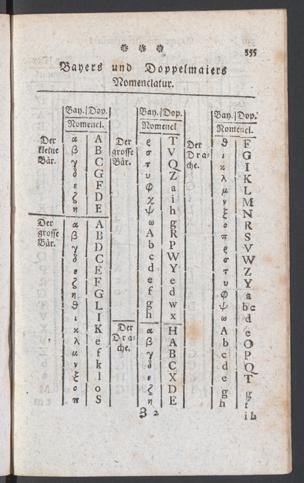 * * *
555
Bayers und Doppelmaiers
Nomenclatur.
Bay. Dop.
Nomencl.
Der kleine Bär.
α A
β B
γ C
δ G
ε F
ζ D
η E
Der grosse Bär.
α A
β B
γ D
δ C
ε E
ζ F
η G
θ L
ι I
κ K
λ e
μ f
ν k
ξ l
ο o
π S
Bay. Dop.
Nomencl.
Der grosse Bär.
ρ T
σ V
τ Q
υ Z
φ a
χ i
ψ h
ω g
A R
b P
c W
d Y
e e
f d
g w
h x
Der Drache.
α H
β A
γ B
δ C
ε X
ζ D
η E
Bay. Dop.
Nomencl.
Der Drache.
θ F
ι G
κ I
λ K
μ L
ν M
ξ N
ο R
π S
ρ U
σ V
τ W
υ Z
φ Y
χ a
ψ b c
ω d
A e
b O
c P
d Q
e T
f g
g f
h i h
Z 2